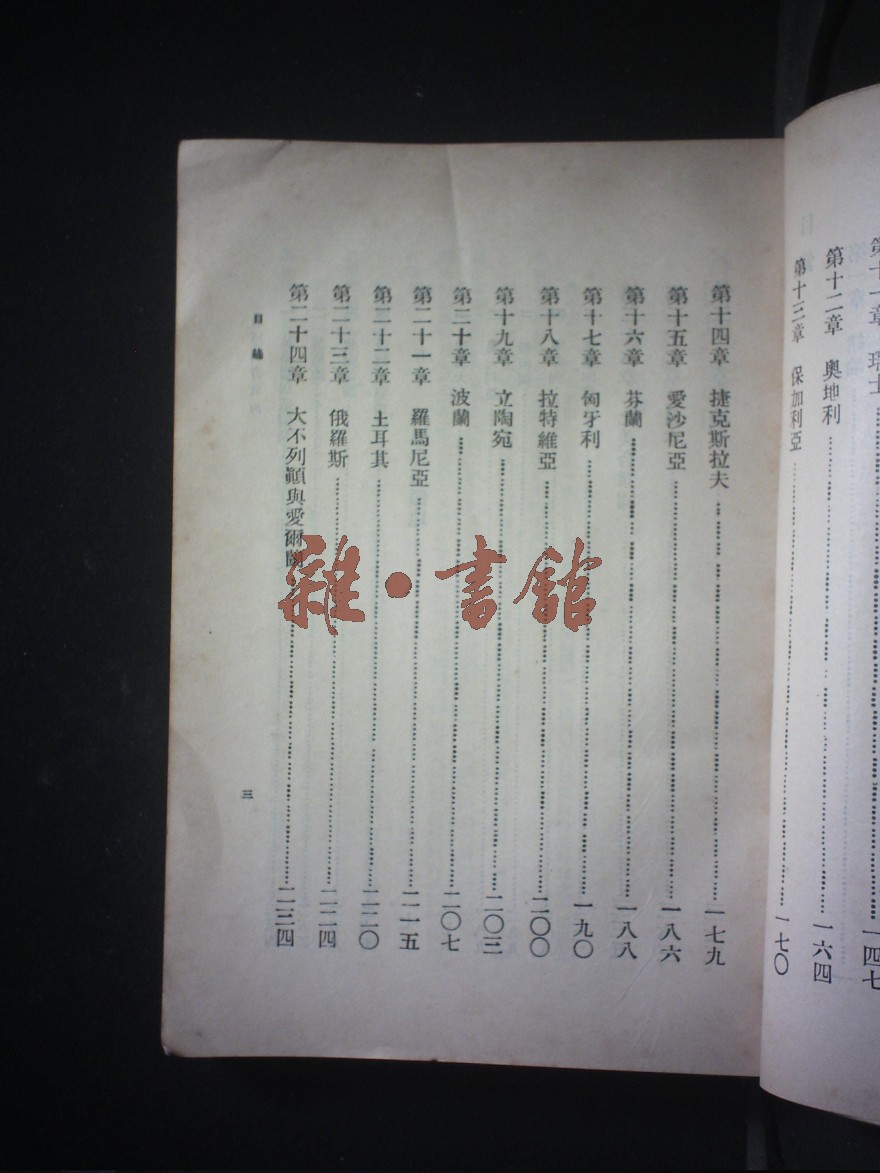 第十一章 瑞士……一四七
第十二章 奧地利……一六四
第十三章 保加利亞……一七〇
第十四章 捷克斯拉夫……一七九
第十五章 愛沙尼亞……一八六
第十六章 芬蘭……一八八
第十七章 匈牙利……一九〇
第十八章 拉特維亞……二〇〇
第十九章 立陶宛……二〇三
第二十章 波蘭……二〇七
第二十一章 羅馬尼亞……二一五
第二十二章 土耳其……二二〇
第二十三章 俄羅斯……二二四
第二十四章 大不列顛與愛爾蘭……二三四
目錄
三
雜·書館